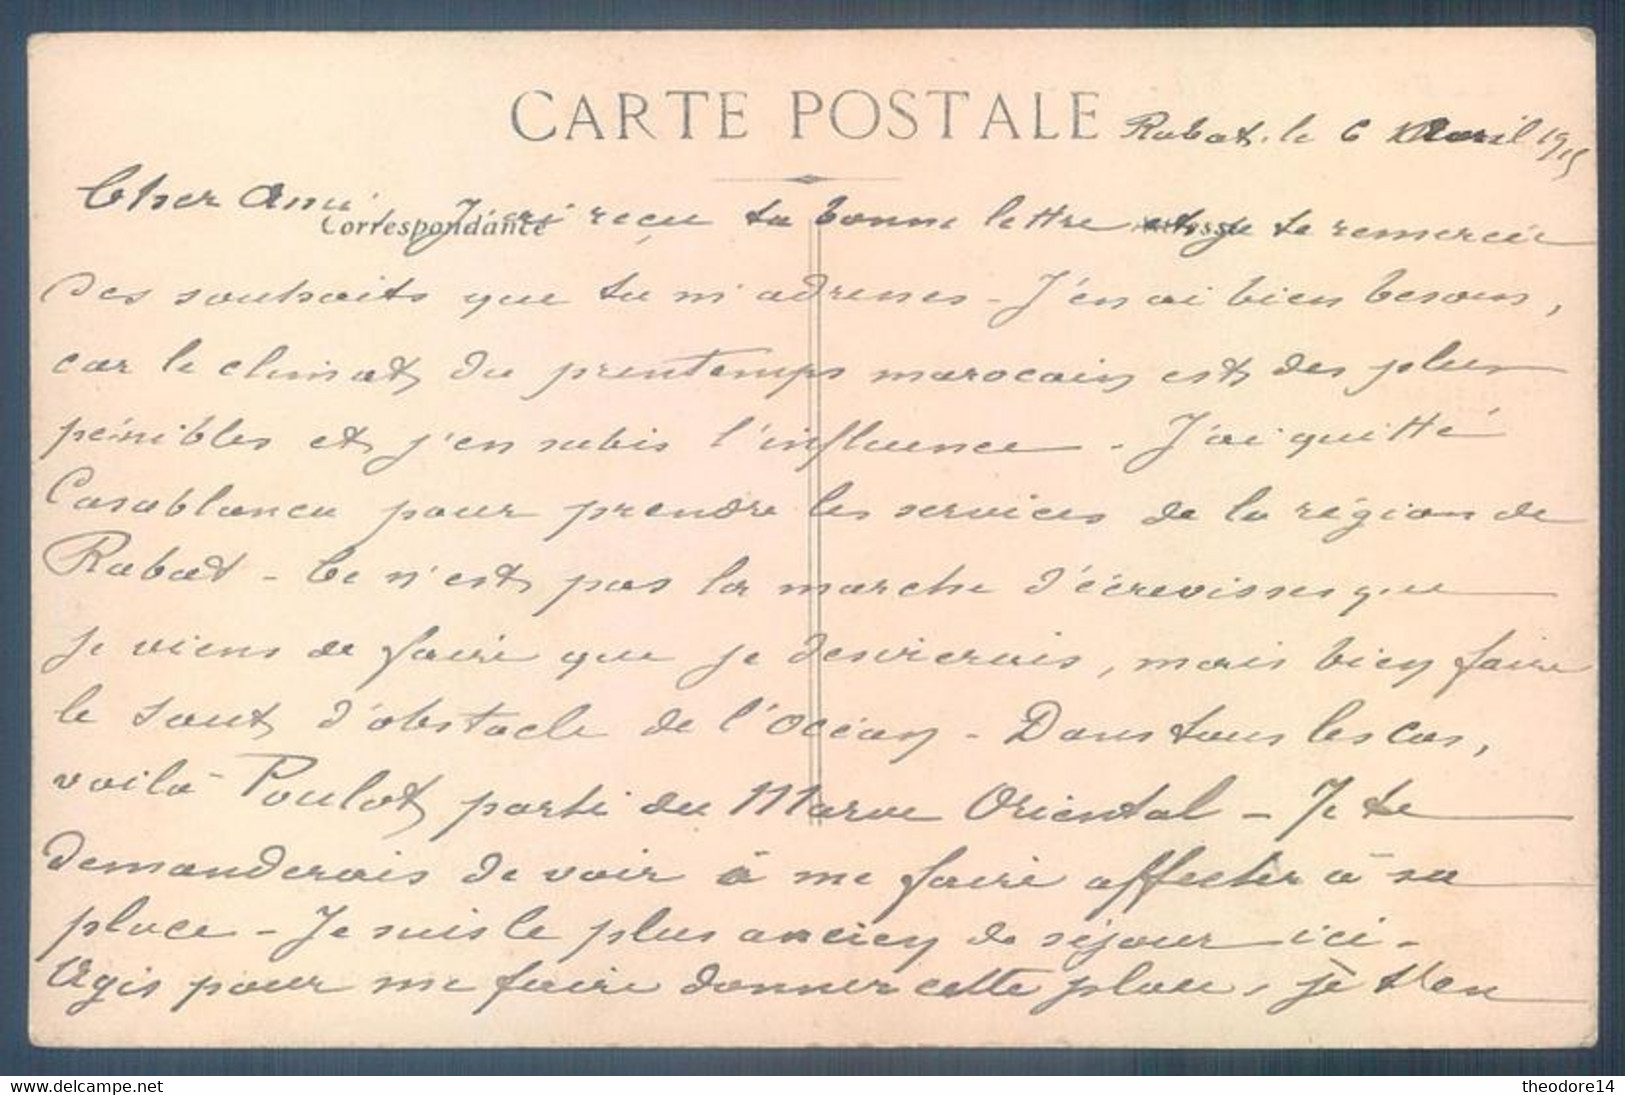 CARTE POSTALE
Rabat, le 6 Avril 1915
Cher Ami
Correspondance
J'ai reçu ta bonne lettre et je te remercie
des souhaits que tu m'adresses - J'en ai bien besoin,
car le climat du printemps marocain est des plus
pénibles et j'en subis l'influence - J'ai quitté
Casablanca pour prendre les services de la région de
Rabat - Ce n'est pas la marche d'écrevisses que
je viens de faire que je desirerais, mais bien faire
le saut d'obstacle de l'Océan - Dans tous les cas,
voilà Poulot parti du Maroc Oriental - Je te
demanderais de voir à me faire affecter à sa
place - Je suis le plus ancien de séjour ici -
Agis pour me faire donner cette place, je t'en
www.delcampe.net
theodore14